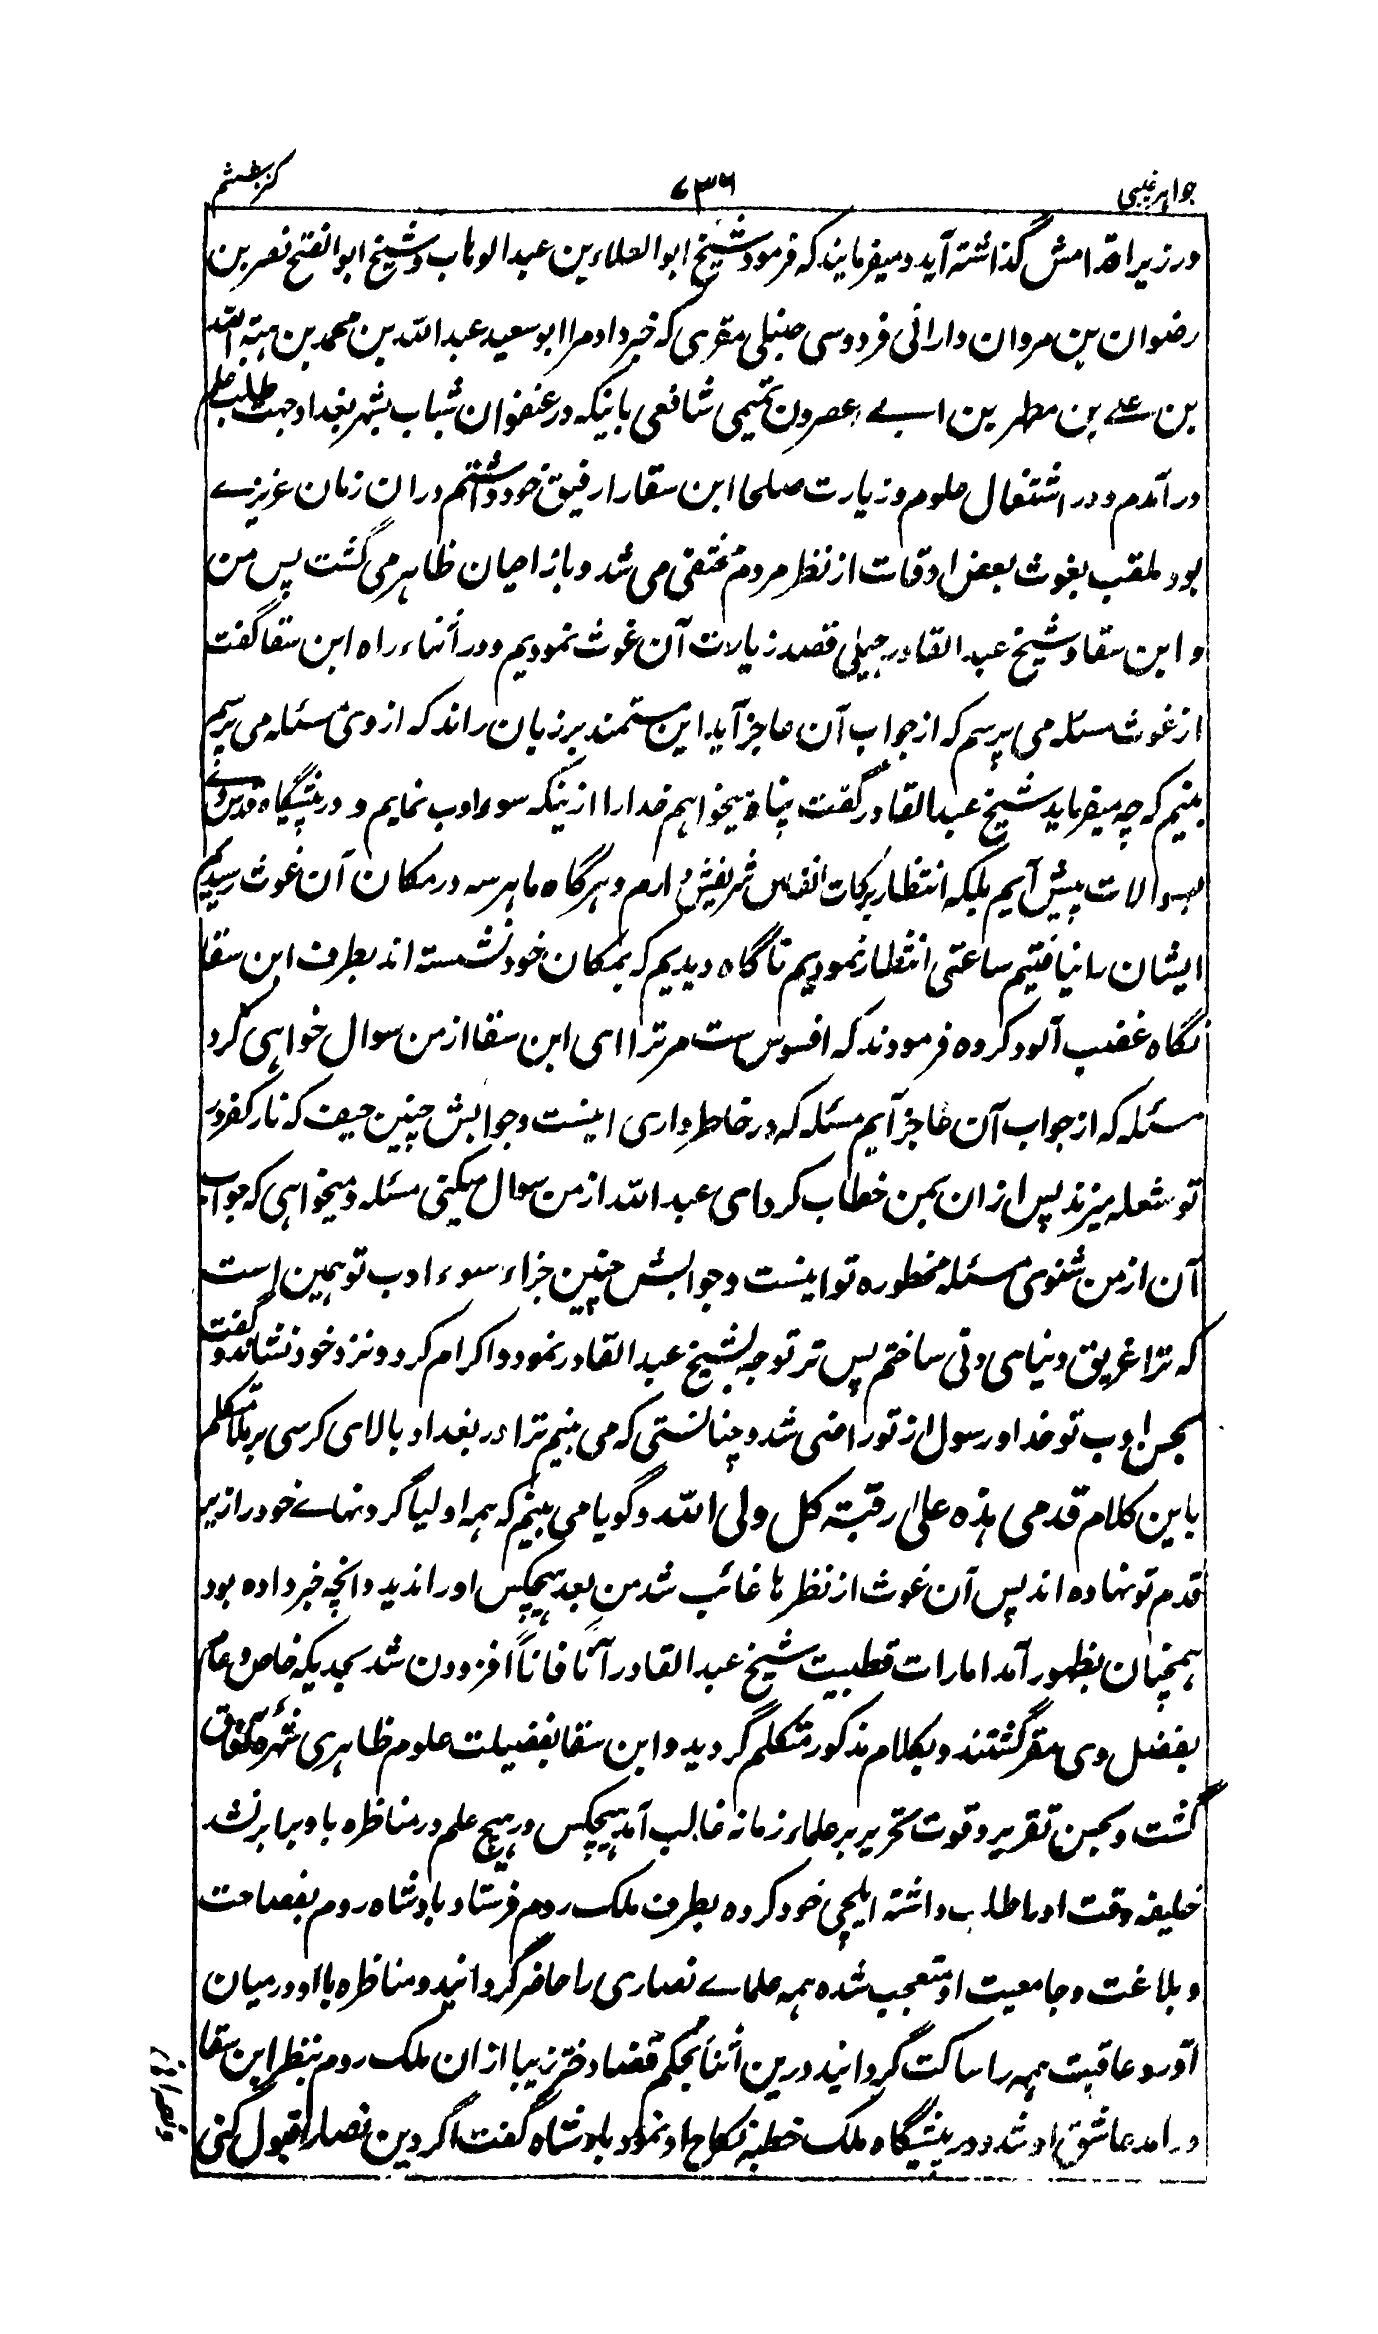 جواهر غیبی
۷۳۶
کنز ششم
در زیر اقدامش گذاشته آید و میفرمایند که فرمود شیخ ابو العلاء بن عبد الوهاب و شیخ ابو الفتح نصر بن
رضوان بن مروان دارانی فردوسی حنبلی مقری که خبر داد مرا ابو سعید عبد الله بن محمد بن هبته الله
بن علے بن مطهر بن ابے عصرون تمیمی شافعی بانیکه در عنفوان شباب بشهر بغداد جهت طلب علم
در آمدم و در اشتغال علوم و زیارت صلحا ابن سقا را رفیق خود داشتم دران زمان عزیزے
بود ملقب بغوث بعض اوقات از نظر مردم مختفی می شد و باز احیان ظاهر می گشت پس من
و ابن سقا و شیخ عبد القادر جیلی قصد زیارت آن غوث نمودیم و در أثناء راه ابن سقا گفت
از غوث مسئله می پرسم که از جواب آن عاجز آید این مستمند بر زبان راند که از وی مسئله می پرسم
بینم که چه میفرماید شیخ عبد القادر گفت پناه میخواهم خدا را ازینکه سوء ادب نمایم و در پیشگاه قدس وے
بسوالات پیش آیم بلکه انتظار برکات انفاس شریفش دارم و هرگاه ما هر سه در مکان آن غوث رسیدیم
ایشان را نیافتیم ساعتی انتظار نمودیم ناگاه دیدیم که بمکان خود نشسته اند بطرف ابن سقا
نگاه غضب آلود کرده فرمودند که افسوس ست مر ترا ای ابن سقا از من سوال خواهی کرد
مسئله که از جواب آن عاجز آیم مسئله که در خاطر داری اینست و جوابش چنین حیف که نار کفر در
تو شعله میزند پس ازان بمن خطاب کرد ای عبد الله از من سوال میکنی مسئله و میخواهی که جواب
آن از من شنوی مسئله مخطوره تو اینست و جوابش چنین جزاء سوء ادب تو همین است
که ترا غریق دنیای دنی ساختم پس تر توجه بشیخ عبد القادر نمود و اکرام کرد و نزد خود نشاند و گفت
بحسن ادب تو خدا و رسول از تو راضی شد و چنانستی که می بینم ترا در بغداد بالای کرسی بر ملا متکلم
باین کلام قدمی هذه علی رقبته کل ولی الله و گویا می بینم که همه اولیا گردنهاے خود را زیر
قدم تو نهاده اند پس آن غوث از نظر ها غائب شد من بعد هیچکس او را ندید و انچه خبر داده بود
همچنان بظهور آمد امارات قطبیت شیخ عبد القادر آناً فاناً افزودن شد بحدیکه خاص و عام
بفضل وی مقر گشتند و بکلام مذکور متکلم گردید و ابن سقا بفضیلت علوم ظاهری شهره آفاق
گشت و بحسن تقریر و قوت تحریر بر علماء زمانه غالب آمد هیچکس در هیچ علم در مناظره با و برابر نشد
خلیفه وقت او را طلب داشته ایلچی خود کرده بطرف ملک روم فرستاد بادشاه روم بفصاحت
و بلاغت و جامعیت او متعجب شده همه علماے نصاری را حاضر گردانید و مناظره با او درمیان
آورد و عاقبت همه را ساکت گردانید درین اثنأ بحکم قضا دختر زیبا ازان ملک روم بنظر ابن سقا
در امد عاشق او شد و در پیشگاه ملک خطبهٔ نکاح او نمود بادشاه گفت اگر دین نصارا قبول کنی